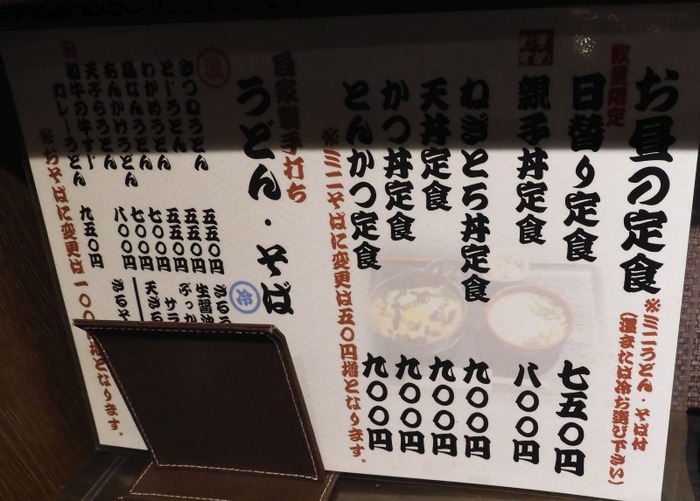 お昼の定食
※ミニうどん・そば付
(温または冷お選び下さい)
数量限定
日替り定食 七五〇円
親子丼定食 八〇〇円
ねぎとろ丼定食 九〇〇円
天丼定食 九〇〇円
かつ丼定食 九〇〇円
とんかつ定食 九〇〇円
※ミニそばに変更は五〇円増となります。
手打ち
うどん・そば
温
きつねうどん 五五〇円
とじうどん 五五〇円
わかめうどん 五五〇円
鳥なんうどん 七〇〇円
あんかけうどん 七〇〇円
天ぷらうどん 八〇〇円
カレーうどん 九五〇円
冷
生醤油
ぶっか
サラ
※おそばに変更は一〇〇円増となります。